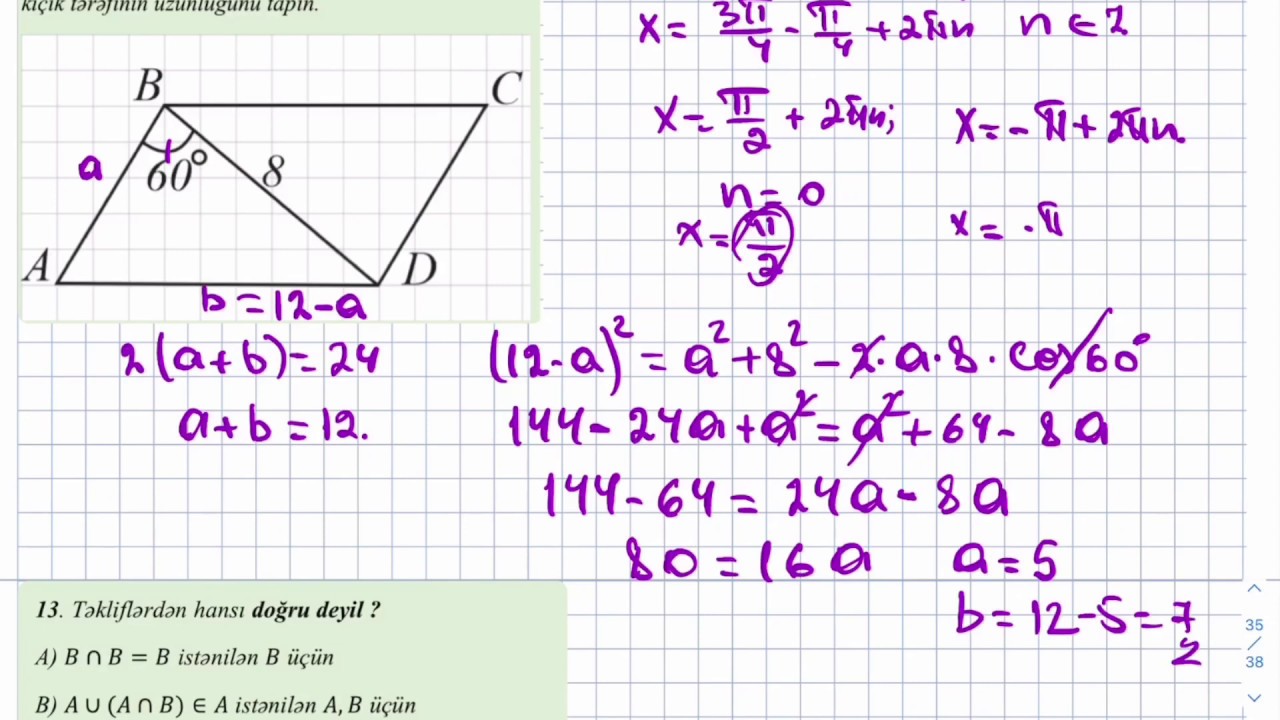 kiçik tərəfinin uzunluğunu tapın.
B
C
a
60°
8
A
D
b = 12-a
2(a+b)=24
a+b=12.
x= 3π/4 - π/4 + 2πn n ∈ Z
x= π/2 + 2πn; x=-π+2πn
n=0
x= π/2
x= -π
(12-a)²=a²+8²-2·a·8·cos60°
144-24a+a²=a²+64-8a
144-64=24a-8a
80=16a a=5
b=12-5=7
2
13. Təkliflərdən hansı doğru deyil ?
A) B ∩ B = B istənilən B üçün
B) A ∪ (A ∩ B) ∈ A istənilən A, B üçün
35
/
38